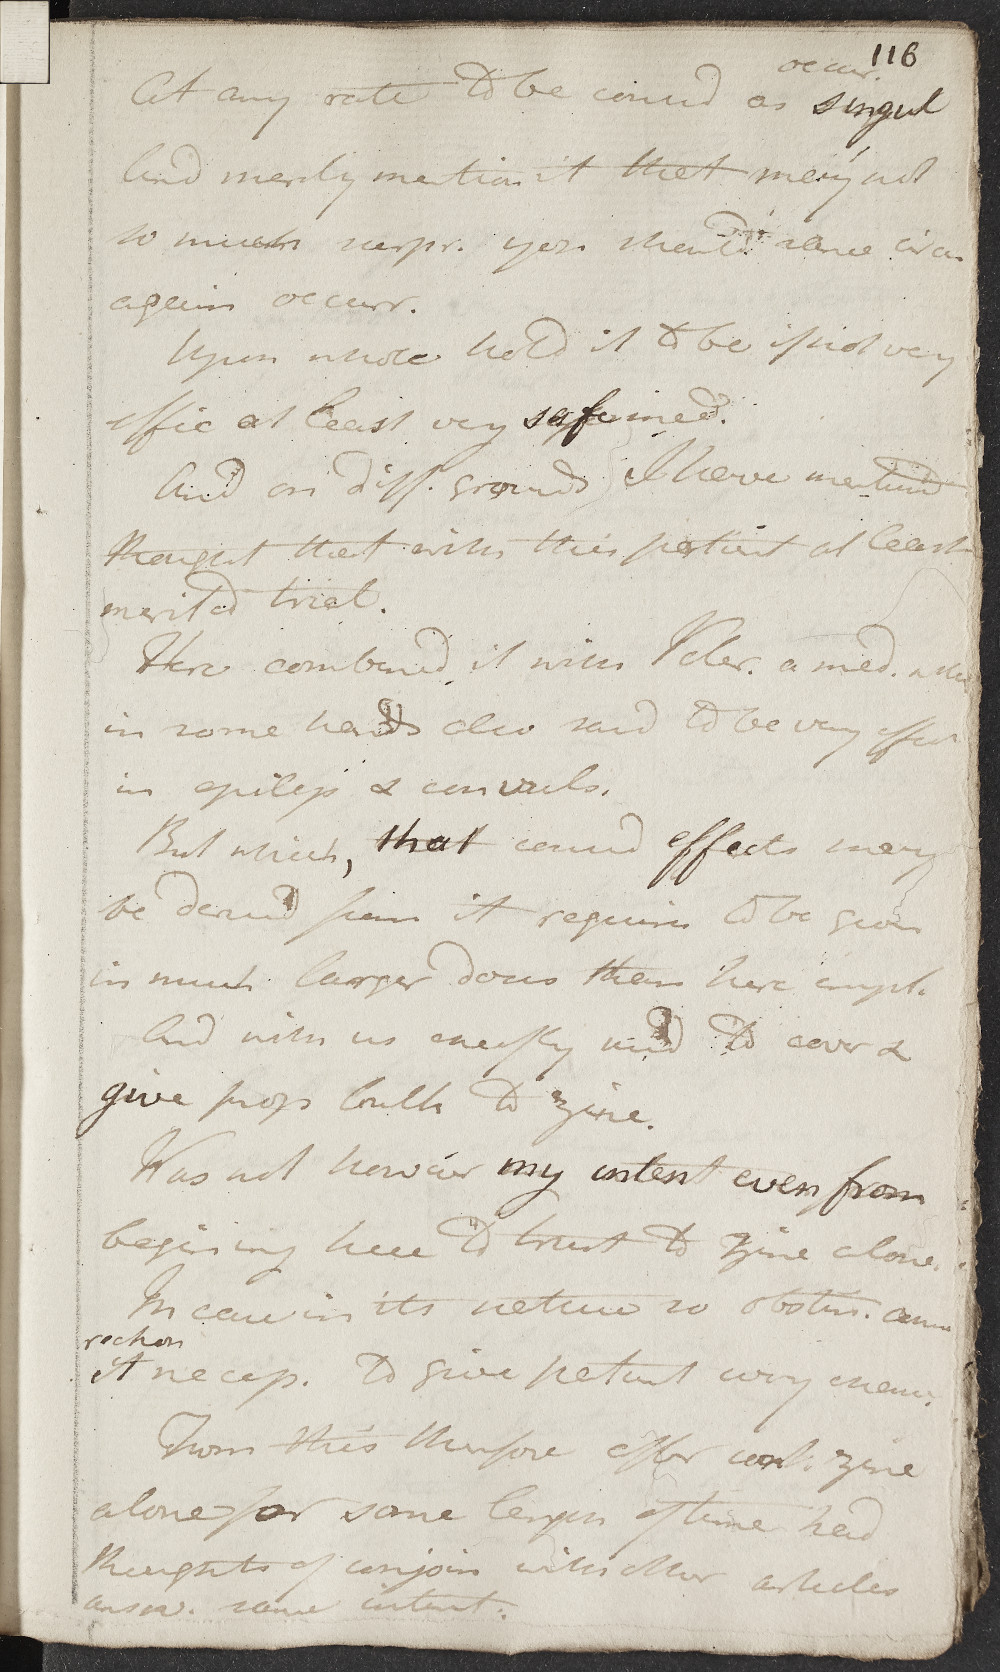 116
occur.
At any rate to be consid as singul
And merely mention it that may not
so much surpr. you should same circu
again occurr.
Upon whole hold it to be if not very
effic at least very safe med.
And on diff. grounds I have mentiond
thought that with this patient at least
merited trial.
Here combined it with Valer. a med. whi
in some hands also said to be very effect
in epileps & convuls.
But which, that consid effects may
be derived from it requires to be given
in much larger doses than here empl.
And with us chiefly used to cover &
give prop bulk to zinc.
Was not however my intent even from
beginning here to trust to zinc alone.
In case in its nature so obstin.
reckon
it necess. to give patient every chanc.
From this therefore after cont. zinc
alone for some length of time had
thoughts of conjoin with other articles
answ. same intent.